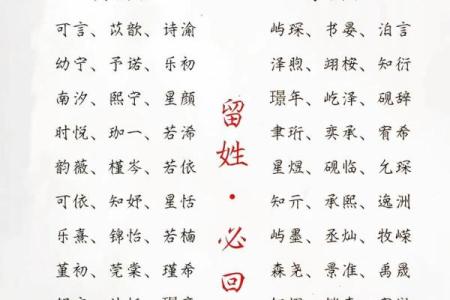 可言、苡歆、诗渝
幼宁、予诺、乐初
南汐、熙宁、星颜
时悦、珈一、若浠
韵薇、槿岑、若依
可依、知妤、星恬
乐熹、锦怡、若楠
堇初、莞棠、瑾希
留姓·必回
屿琛、书晏、泊言
泽煦、翊桉、知衍
璟年、屹泽、砚辞
聿珩、奕承、宥希
星煜、砚临、允琛
知亓、承熙、逸洲
屿墨、丞灿、牧嵘
森尧、景准、禹晟